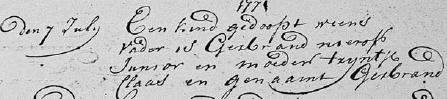 1771
den 7 July Een kind gedoopt weens
vader is Gerbrand
Junior en moeder tryntje
Claas en genaamt Gerbrand